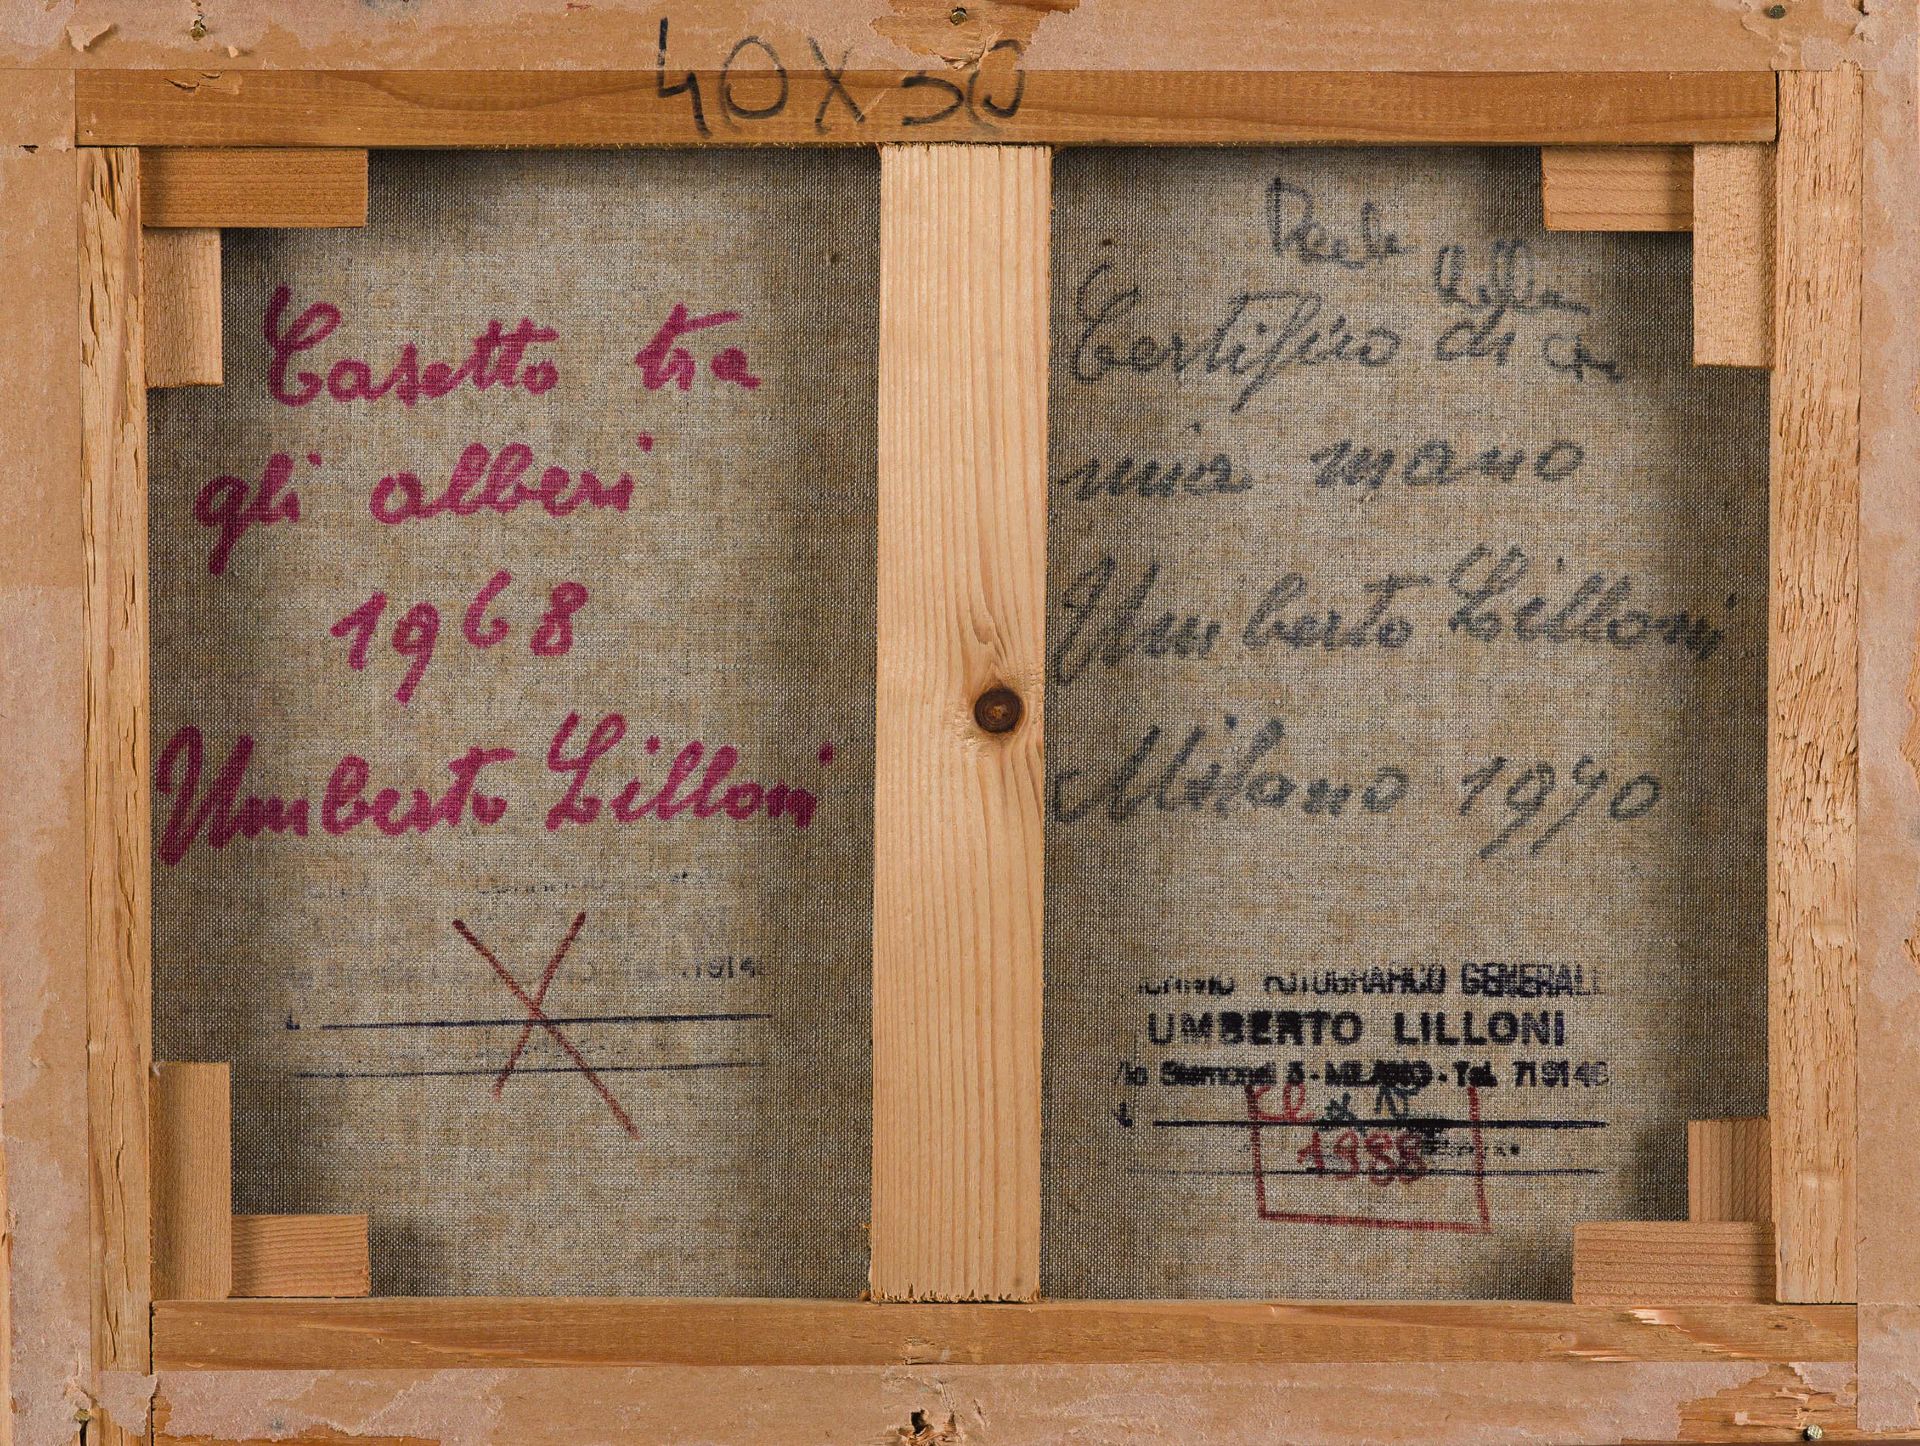 40 x 50
Casetto tra
gli alberi
1968
Umberto Lilloni
Certifico di
mia mano
Umberto Lilloni
Milano 1970
FOTOGRAFICO GENERALE
UMBERTO LILLONI
5 - MILANO - Tel. 719146
1988